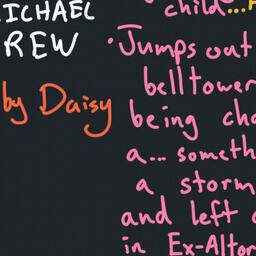 ICHAEL
REW
by Daisy
child...
• Jumps out
belltower
being cha
a... someth
a storm
and left
in Ex-Altor